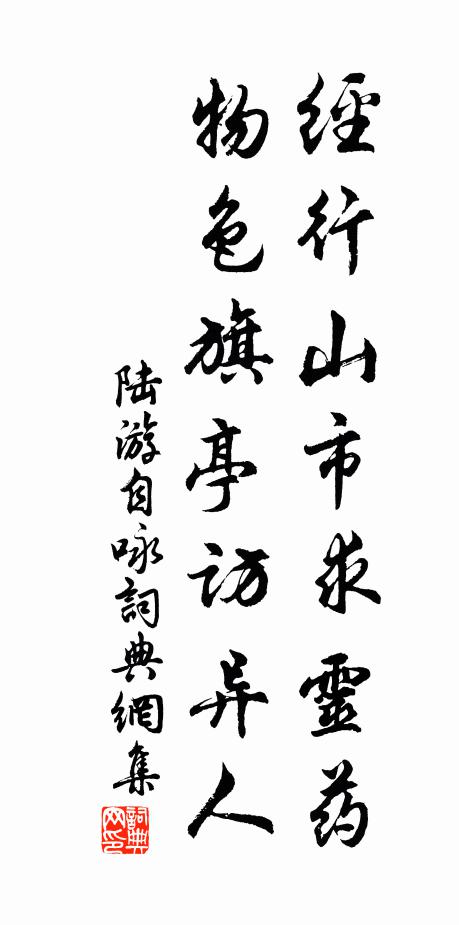 經行山市求靈药
物色旗亭访异人
陆游自咏詞典網集
詞典网印